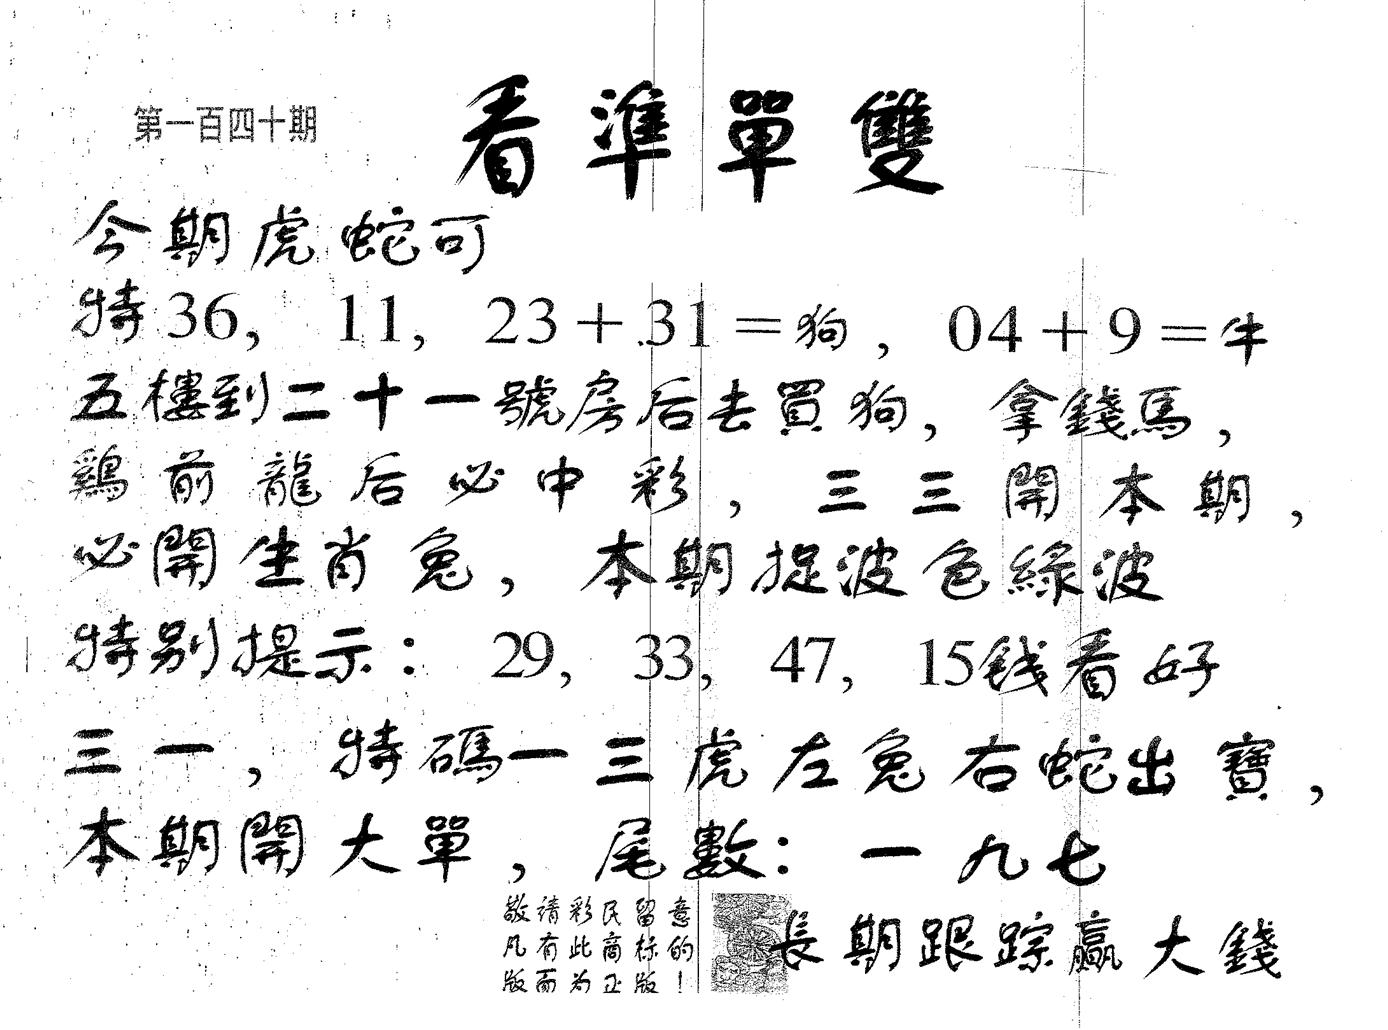 第一百四十期
看準單雙
今期虎蛇可
特36, 11, 23+31=狗, 04+9=牛
五樓到二十一號房后去買狗, 拿錢馬,
鷄前龍后必中彩, 三三開本期,
必開生肖兔, 本期捉波色綠波
特别提示: 29, 33, 47, 15錢看好
三一, 特碼一三虎左兔右蛇出寶,
本期開大單, 尾數: 一九七
敬請彩民留意
凡有此商标的
版面为正版!
長期跟踪贏大錢